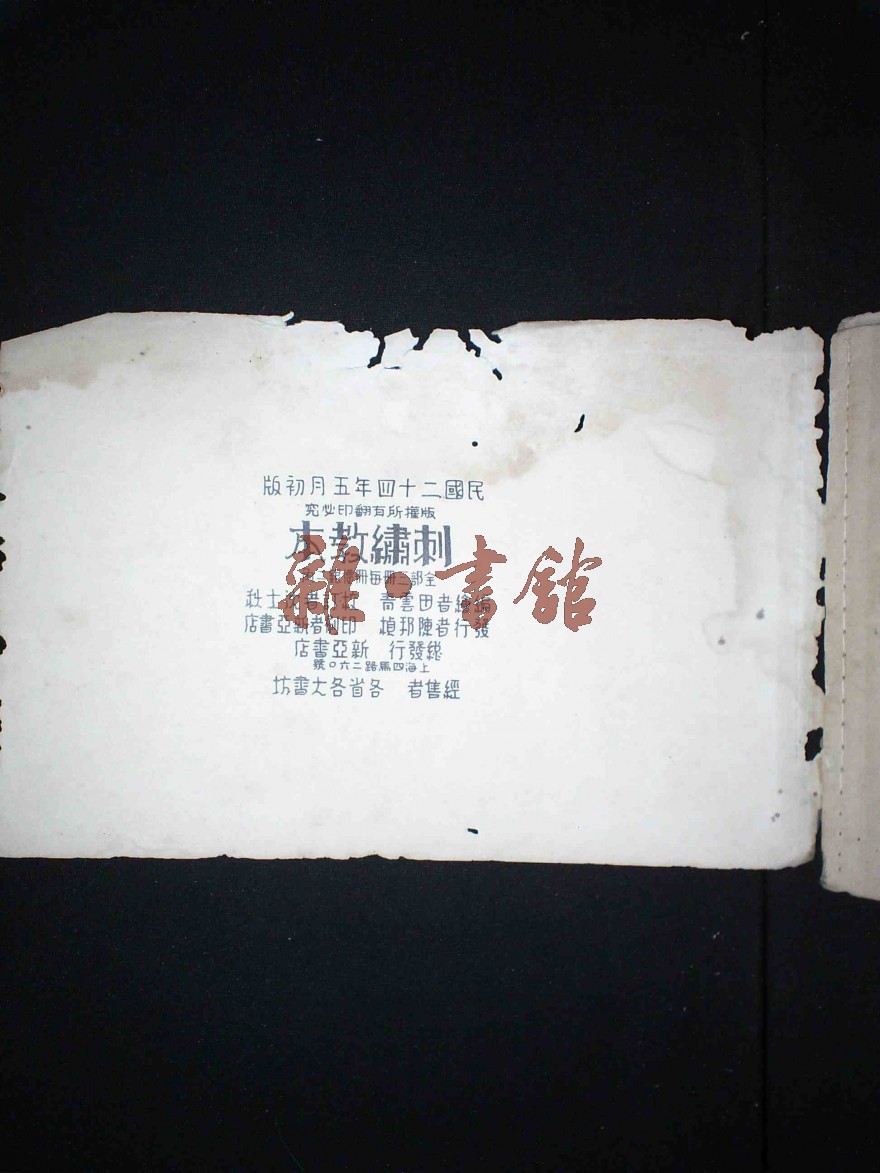 民國二十四年五月初版
版權所有翻印必究
刺繡教本
全部三冊每冊
編繪者田雲青
發行者陳邦楨 印刷者新亞書店
總發行 新亞書店
上海四馬路二六〇號
經售者 各省各大書坊
雜·書館